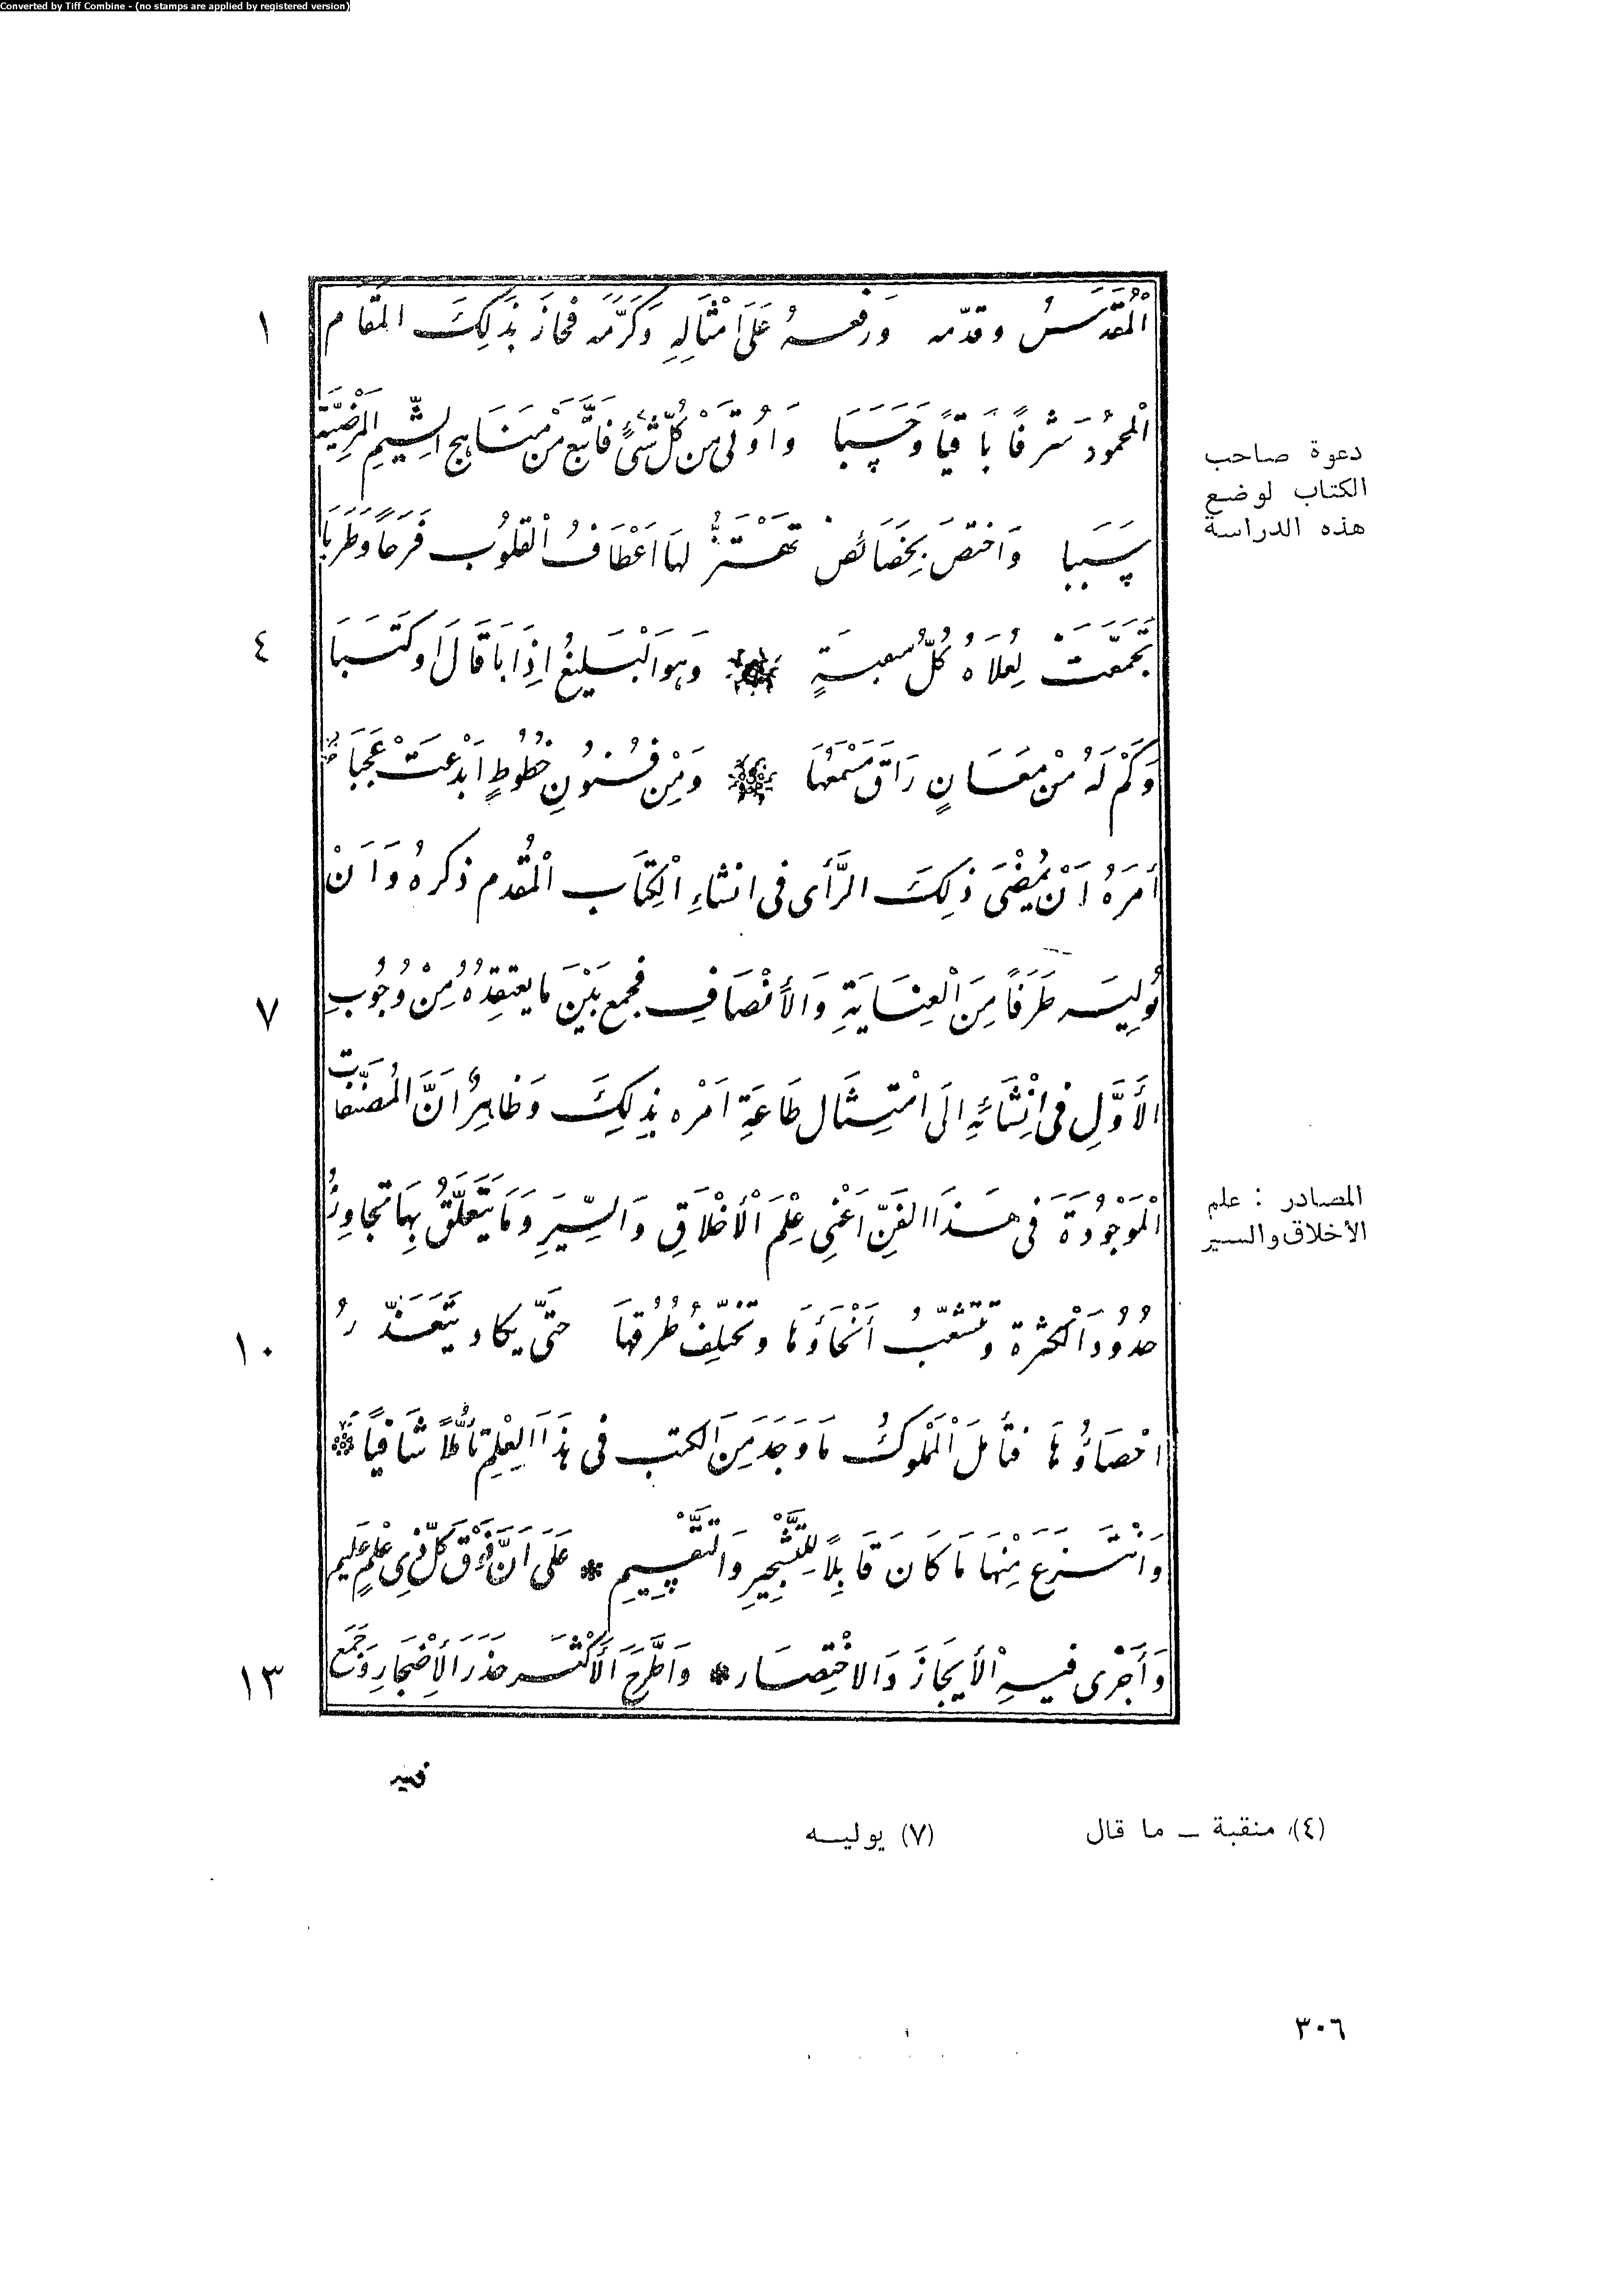 Converted by Tiff Combine - (no stamps are applied by registered version)
١
الْمُقَدَسُ وقدّمه وَرفعهُ عَلَى امْثَالِهِ وَكَرَّمَه فحازَ بذَلِكَ المقَام
الْمحمُودَ شرفًا بَاقيًا وَحَسَبَا وَاُوتى مَنْ كُلّ شئٍ فَاتَّبع مَنْ مَنَاهِج الشِّيمِ المَرْضِيَّة
دعوة صاحب
الكتاب لوضع
هذه الدراسة
سَبَبا وَاختصَ بِخَصَائص تَهْتَزُّ لهَا اَعْطَافُ الْقلُوب فَرَحًا وَطَرَبَا
٤
تَجَمَّعَتْ لِعُلَاهُ كُلّ معبةٍ وَهوَ الْبَليغُ اِذَا بَا قَالَ اَو كَتَبَا
وَكَمْ لَهُ مْنْ مَعَانٍ رَاقَ مَسْمَعُهَا وَمِنْ فُنُونِ خطُوطٍ اَبْدعَتْ عَجَبَا
اَمَرَهُ اَنْ يُمْضىَ ذَلِكَ الرَّأى فى انشاءِ الْكِتَاب الْمُقدم ذكرهُ وَاَنْ
٧
يُولِيَه طَرَفًا مِنَ الْعِنَايَةِ وَالأَنْصَافِ فجمع بَيْنَ مَا يعتقِدُهُ مِنْ وُجُوبِ
الأَوَّلِ فى اِنْشَائِهِ اِلَى امْتِثَال طَاعَةِ اَمْره بِذلِكَ وَظَاهِرٌ اَنَّ الْمُصَنّفَات
الْمَوْجُودَةَ فى هَذَا الفَنِّ اَعْنى عِلْمَ الْأخْلَاقِ وَالسِّيَرِ وَمَا يَتَعَلَّقُ بِهَا تجَاوِزُ
المصادر : علم
الأخلاق والسير
١٠
حدُودَ الْكثرة وَتتشعّبُ أَنْحَاؤهَا وَتختلِفُ طُرُقهَا حَتَّى يكاد يَتَعَذّرُ
احْصَاؤُهَا فتأملَ الْمَمْلوكُ مَا وَجَدَ مِنَ الكتب فى هذَا العِلْمِ تأَمُّلاً شَافيًا
وَانْتَزَعَ مِنْهَا مَا كَانَ قَابِلاً لِلتَّشْجِيرِ وَالتّقْسِيمِ عَلَى اَنَّ فَوْقَ كلّ ذِى عِلْمٍ عَليم
١٣
وَأَجْرى فيهِ الْأيجَازَ وَالاخْتِصَار وَاطَّرَحَ الْأَكْثَر حَذَرَ الأِضْجَارِ وَجَمَع
فيه
(٤) منقبة – ما قال (٧) يوليه
٣٠٦